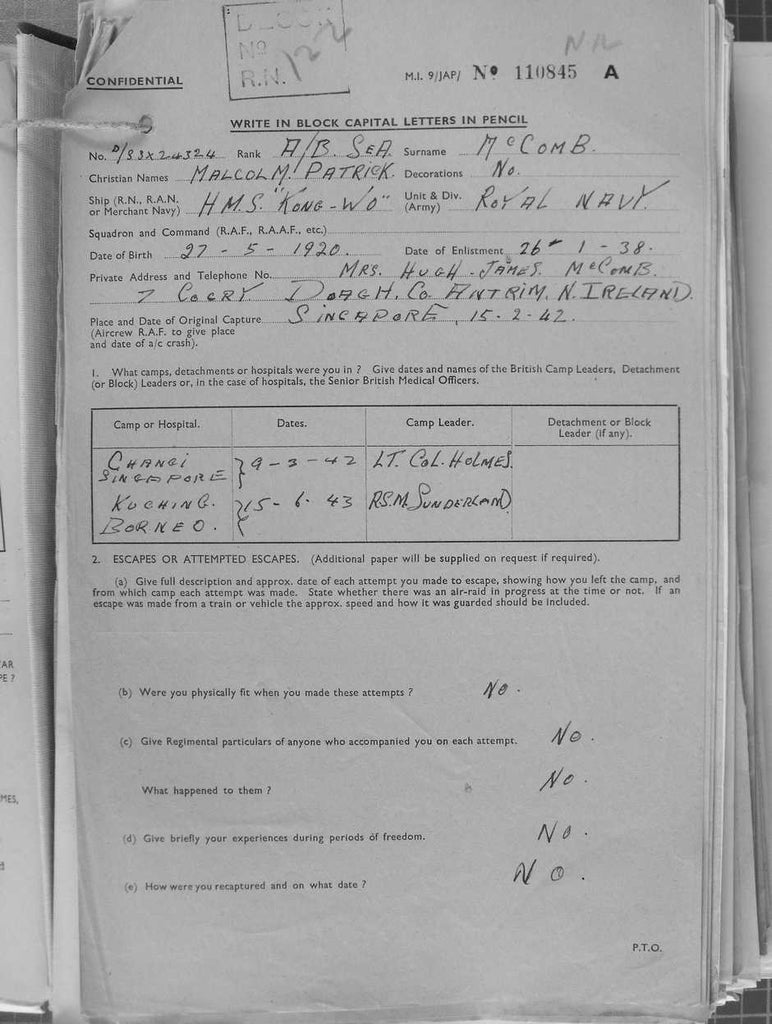 BLOCK
No 122
R.N.
NR
CONFIDENTIAL
M.I. 9/JAP/ No 110845 A
WRITE IN BLOCK CAPITAL LETTERS IN PENCIL
No. D/SSX24324 Rank A/B. SEA. Surname McCOMB.
Christian Names MALCOLM PATRICK. Decorations No.
Ship (R.N., R.A.N. or Merchant Navy) H.M.S. "KUNG-WO" Unit & Div. (Army) ROYAL NAVY.
Squadron and Command (R.A.F., R.A.A.F., etc.)
Date of Birth 27-5-1920. Date of Enlistment 26-1-38.
Private Address and Telephone No. MRS. HUGH-JAMES. McCOMB.
7 COGRY DOAGH. Co. ANTRIM. N. IRELAND.
Place and Date of Original Capture SINGAPORE, 15-2-42.
(Aircrew R.A.F. to give place
and date of a/c crash).
1. What camps, detachments or hospitals were you in ? Give dates and names of the British Camp Leaders, Detachment
(or Block) Leaders or, in the case of hospitals, the Senior British Medical Officers.
Camp or Hospital. Dates. Camp Leader. Detachment or Block Leader (if any).
CHANGI SINGAPORE } 9-3-42 LT. COL. HOLMES.
KUCHING. BORNEO. } 15-6-43 R.S.M. SUNDERLAND
2. ESCAPES OR ATTEMPTED ESCAPES. (Additional paper will be supplied on request if required).
(a) Give full description and approx. date of each attempt you made to escape, showing how you left the camp, and
from which camp each attempt was made. State whether there was an air-raid in progress at the time or not. If an
escape was made from a train or vehicle the approx. speed and how it was guarded should be included.
(b) Were you physically fit when you made these attempts ? No.
(c) Give Regimental particulars of anyone who accompanied you on each attempt. No.
What happened to them ? No.
(d) Give briefly your experiences during periods of freedom. No.
(e) How were you recaptured and on what date ? NO.
P.T.O.